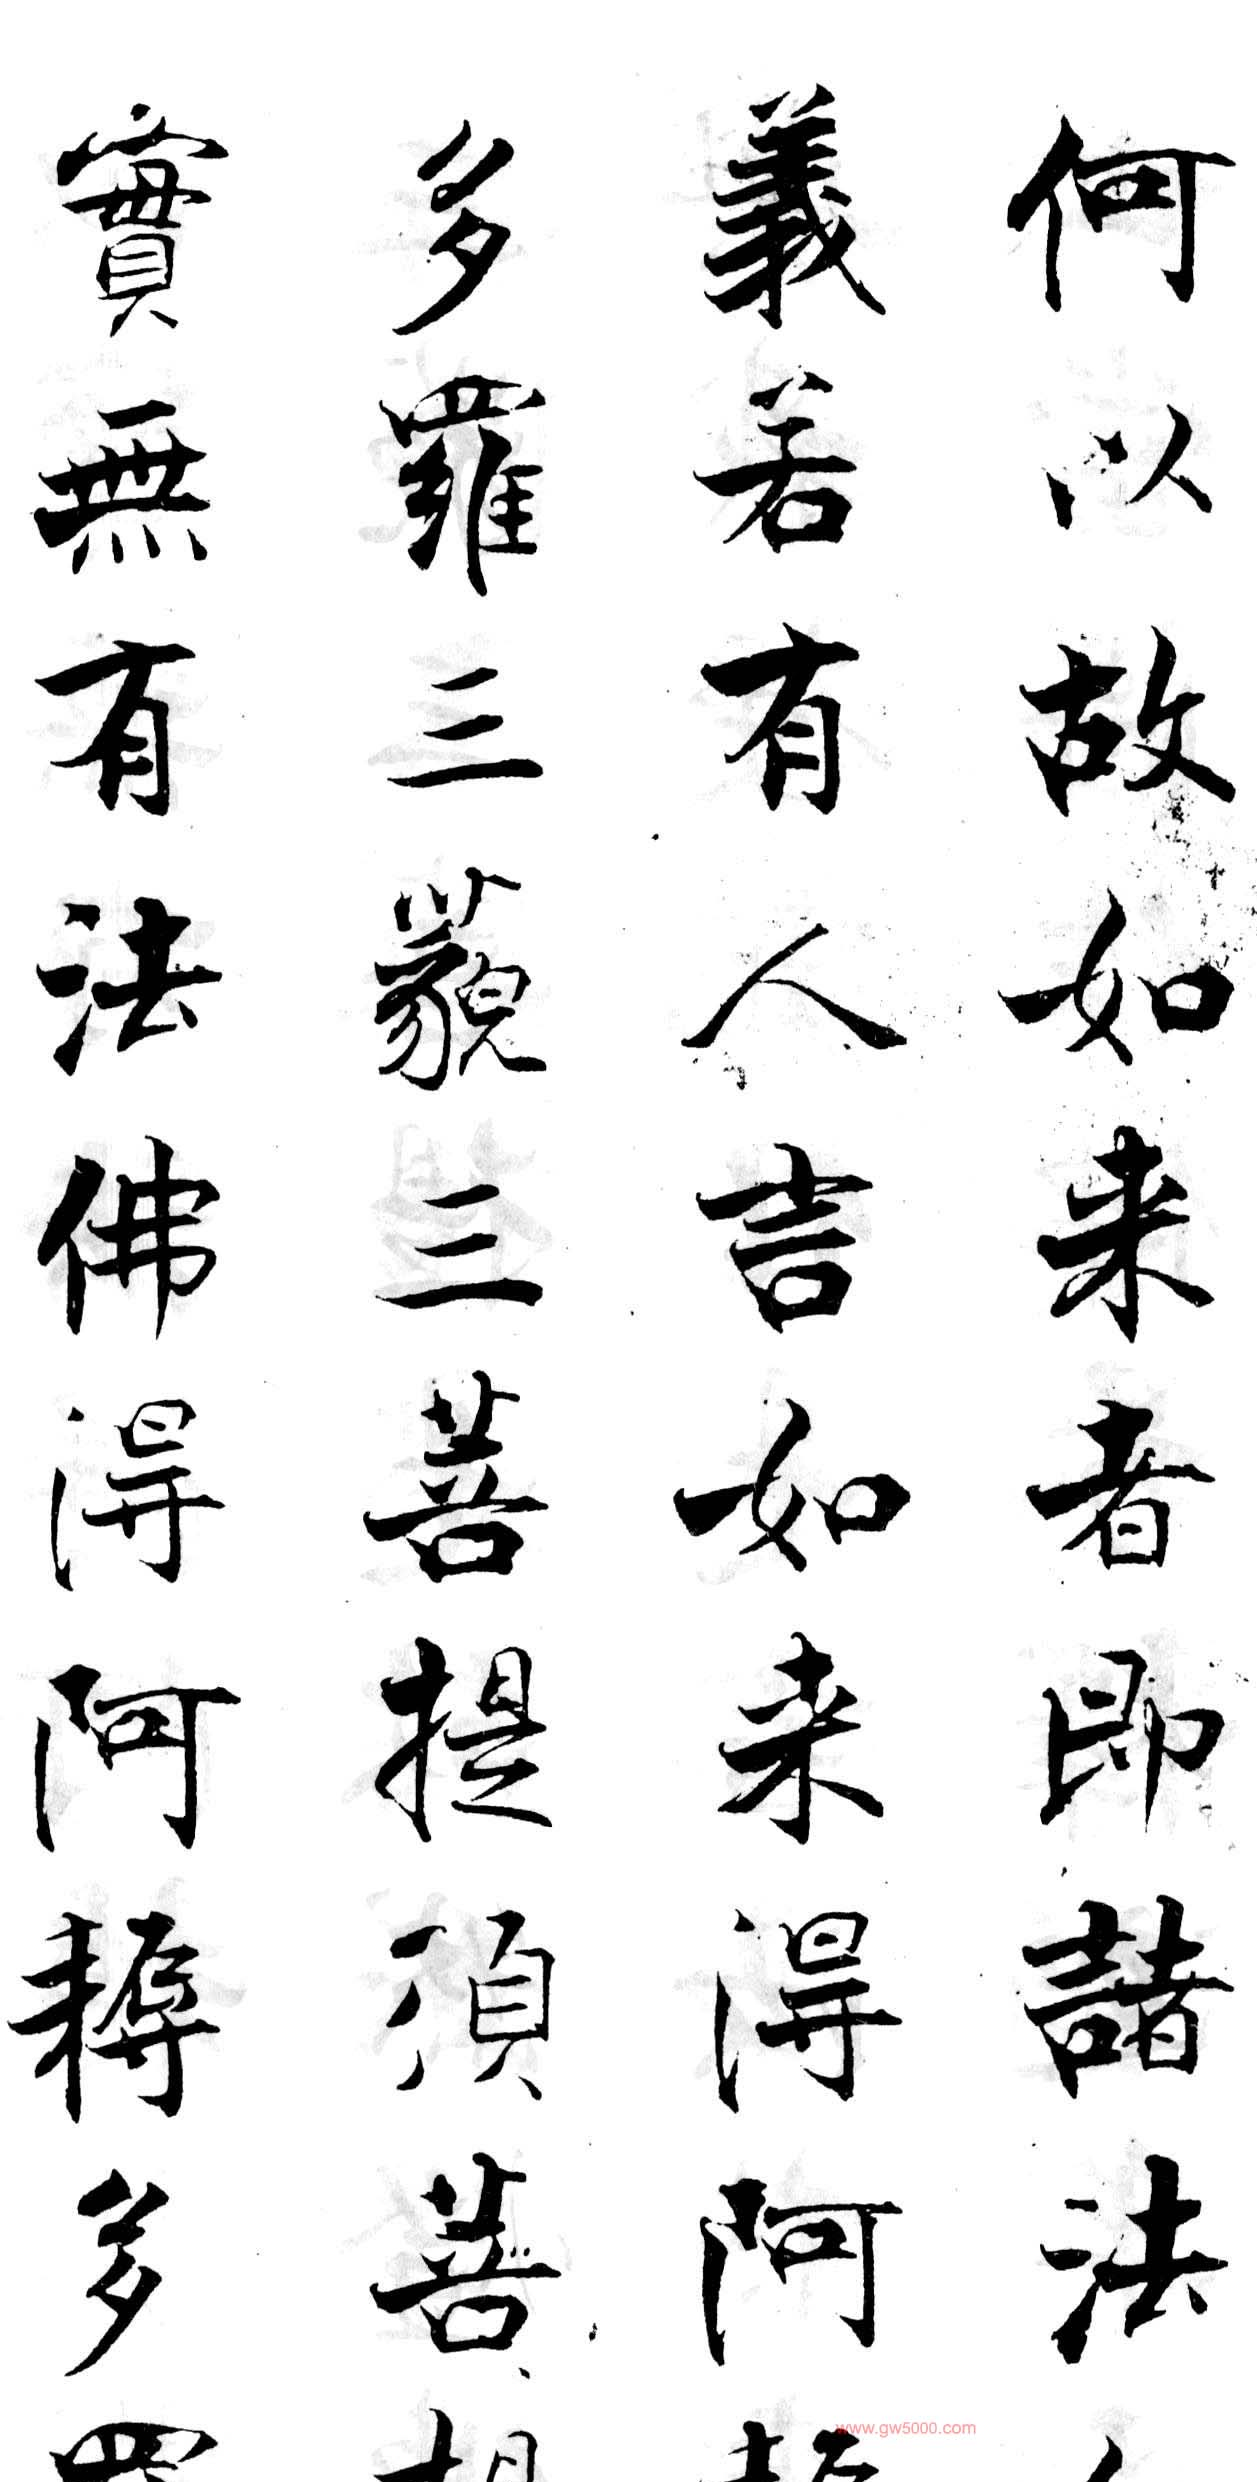 何以故如来者即諸法
義若有人言如来得阿
多羅三藐三菩提須菩
實無有法佛得阿耨多
www.gw5000.com